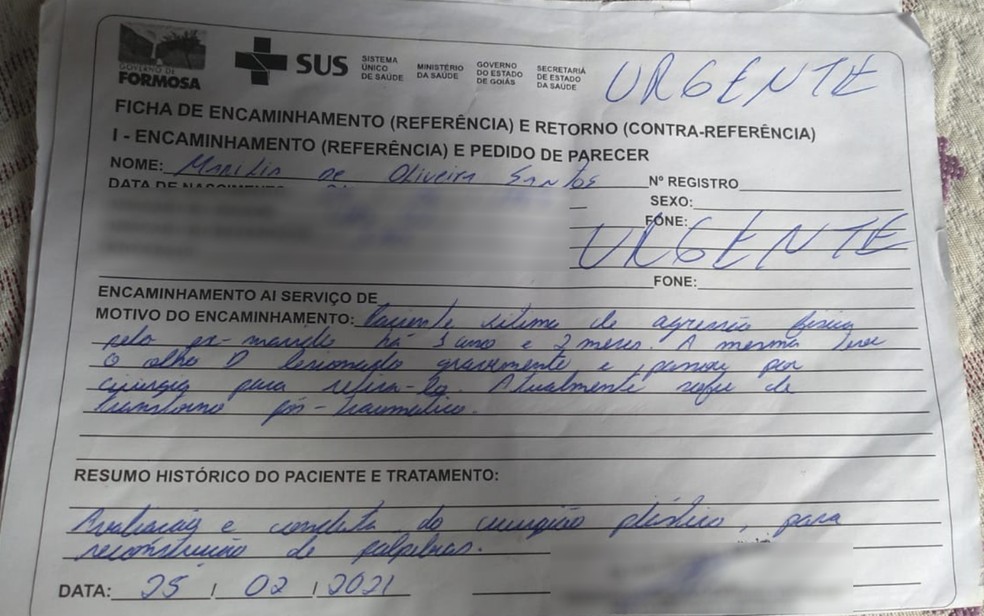 GOVERNO DE
FORMOSA
SUS
SISTEMA
ÚNICO
DE SAÚDE
MINISTÉRIO
DA SAÚDE
GOVERNO
DO ESTADO
DE GOIÁS
SECRETARIA
DE ESTADO
DA SAÚDE
URGENTE
FICHA DE ENCAMINHAMENTO (REFERÊNCIA) E RETORNO (CONTRA-REFERÊNCIA)
I - ENCAMINHAMENTO (REFERÊNCIA) E PEDIDO DE PARECER
NOME: Marilia de Oliveira Santos Nº REGISTRO
DATA DE NASCIMENTO
SEXO:
FONE:
URGENTE
FONE:
ENCAMINHAMENTO AI SERVIÇO DE
MOTIVO DO ENCAMINHAMENTO: Paciente vítima de agressão física
pelo ex-marido há 1 ano e 2 meses. A mesma teve
o olho D lesionado gravemente e passou por
cirurgia para retirá-lo. Atualmente sofre de
transtorno pós-traumático.
RESUMO HISTÓRICO DO PACIENTE E TRATAMENTO:
Avaliação e conduta do cirurgião plástico, para
reconstrução de pálpebras.
DATA: 25 / 02 / 2021